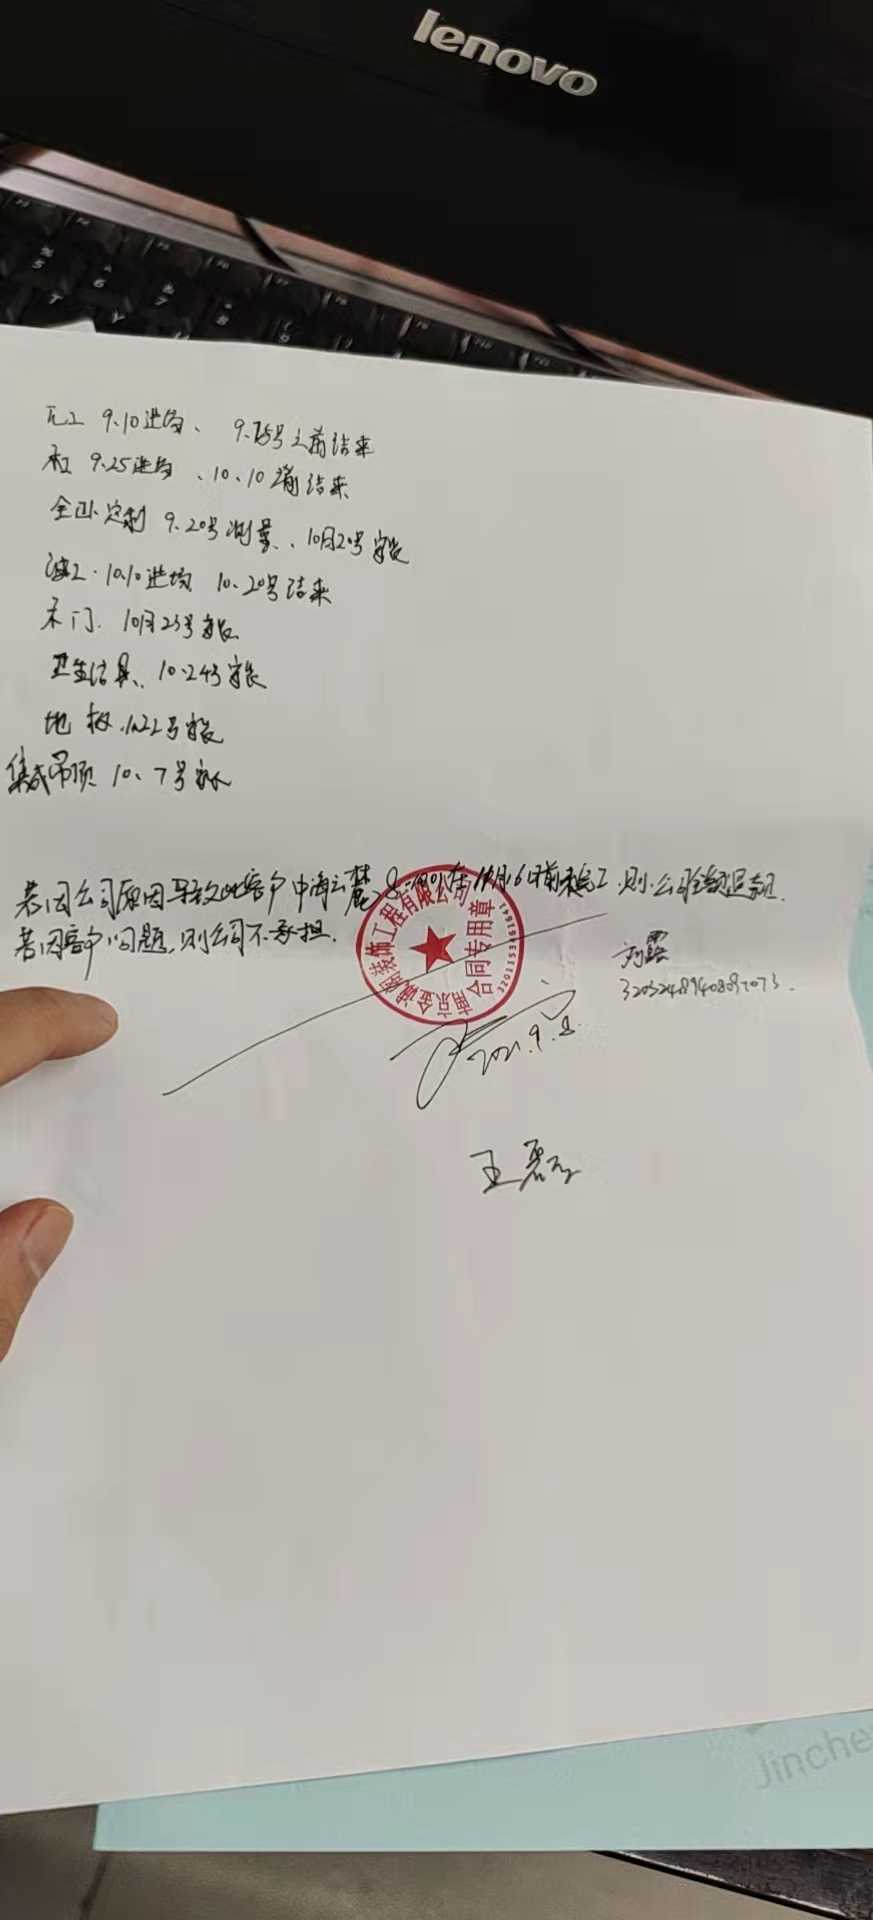 lenovo
瓦工 9.10进场、 9.25号之前结束
木工 9.25进场、10、10前结束
全屋定制 9.20号测量、10月20号安装
漆工·10.10进场 10、20号结束
木门. 10月23号安装
卫生洁具、10.24号安装
地板.10.22号安装
集成吊顶 10、7号安装
若因公司原因导致此客户中海云麓 在 前未完工 则公司全额退款.
若因客户问题,则公司不承担.
南京金诚 装饰工程有限公司
合同专用章
刘露
2021.9.8
王磊
Jinche